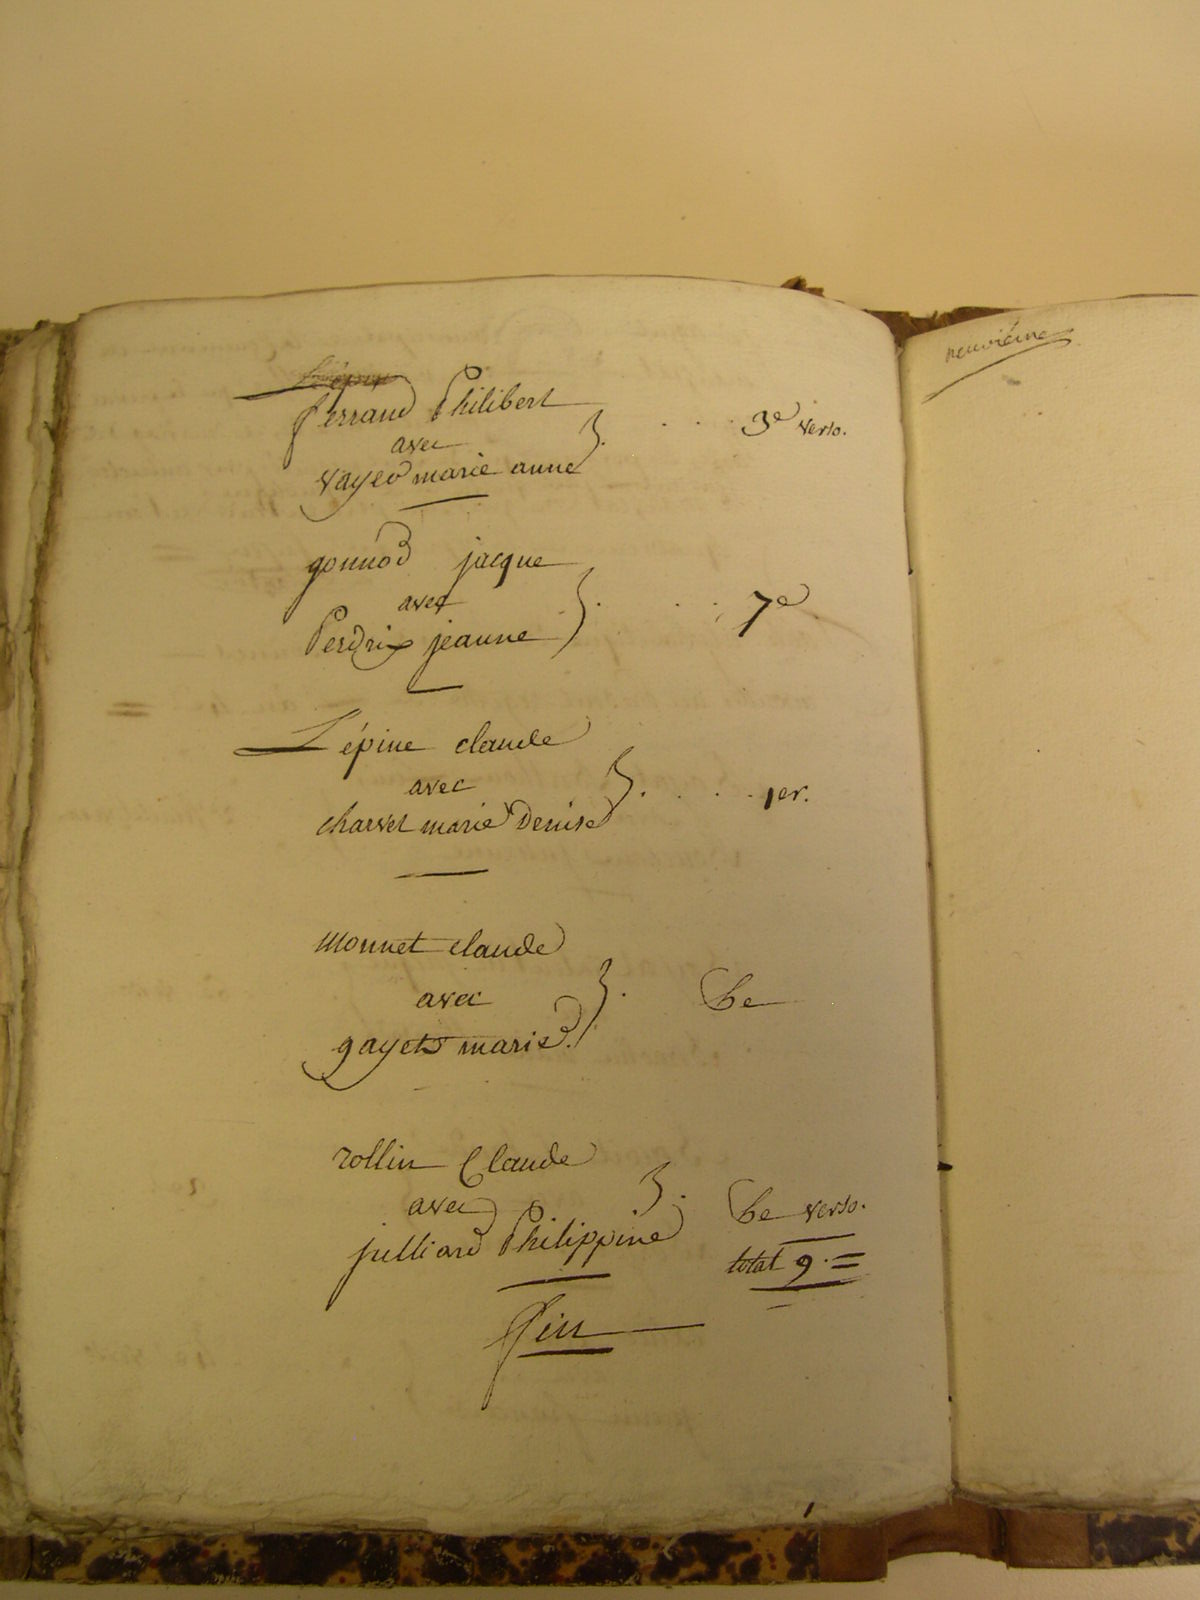 ferrand Philibert
avec
vayeo marie anne
3e verso.
gonnod jacque
avec
Perdrix jeanne
7e
Lépine claude
avec
charvet marie Denise
1er.
Monnet claude
avec
gayet marie
6e
rollin Claude
avec
julliard Philippine
6e verso.
total 9. =
fin
neuvième